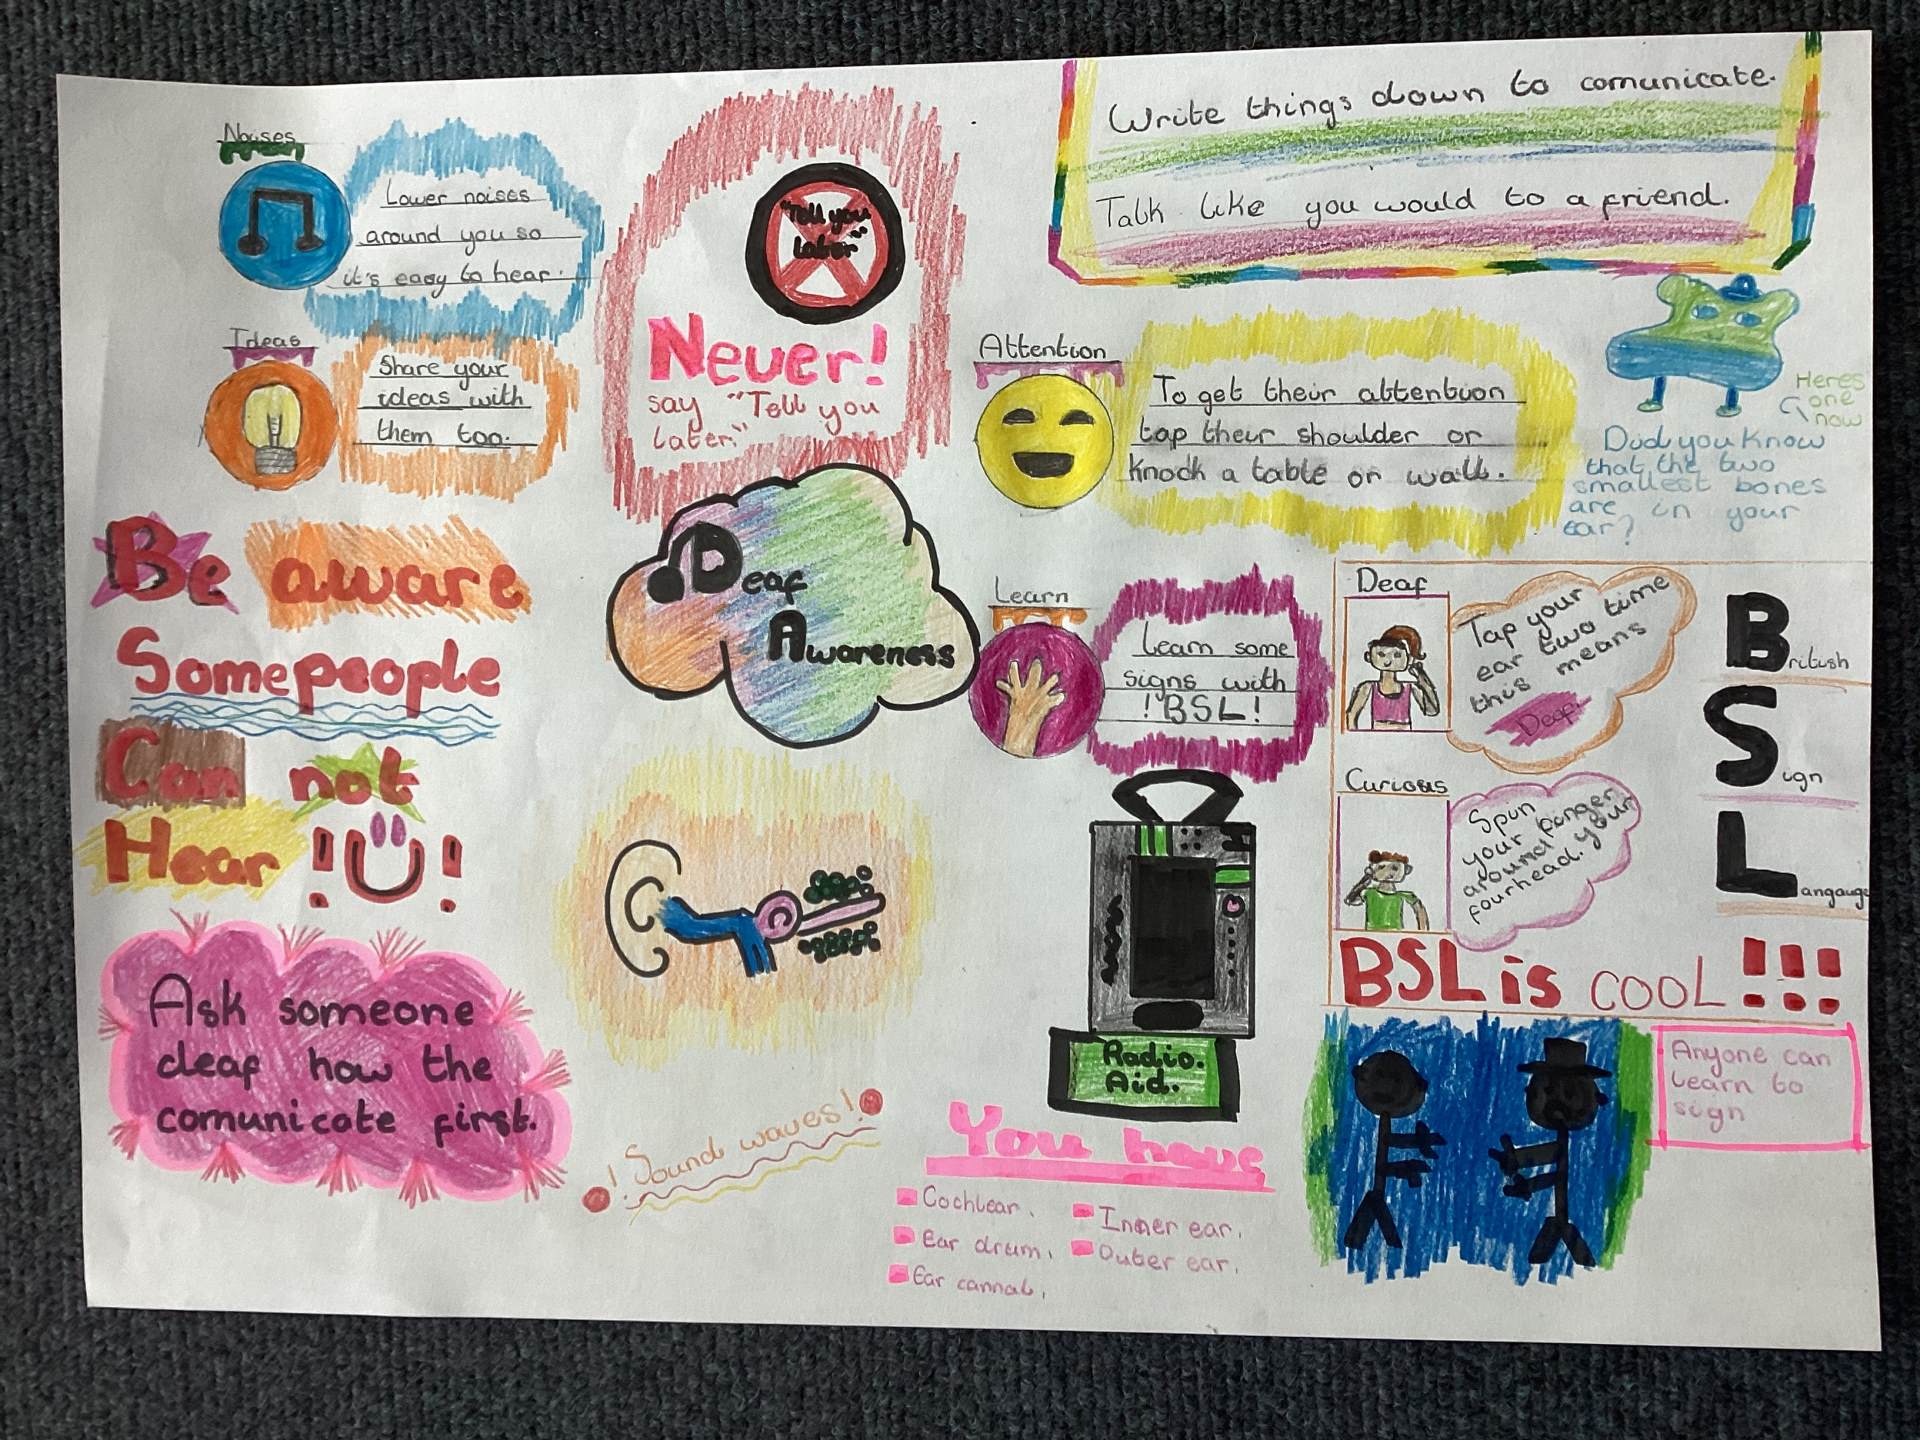 Noises
Lower noises
around you so
it's easy to hear.
Ideas
Share your
ideas with
them too.
"Tell you
Later"
Never!
say "Tell you
Later."
Write things down to comunicate.
Talk like you would to a friend.
Attention
To get their attention
tap their shoulder or
knock a table or wall.
Heres
one
now
Did you know
that the two
smallest bones
are in your
ear?
Be aware
Some people
Can not
Hear !U!
Deaf
Awareness
Learn
Learn some
signs with
!BSL!
Deaf
Tap your
ear two time
this means
Deaf
Curious
Spin
your finger
around your
fourhead.
British
Sign
Langauge
BSL is COOL!!!
Ask someone
deaf how the
comunicate first.
!Sound waves!
Radio.
Aid.
You have
Cochlear.
Ear drum.
Ear cannal.
Inner ear.
Outer ear.
Anyone can
learn to
sign